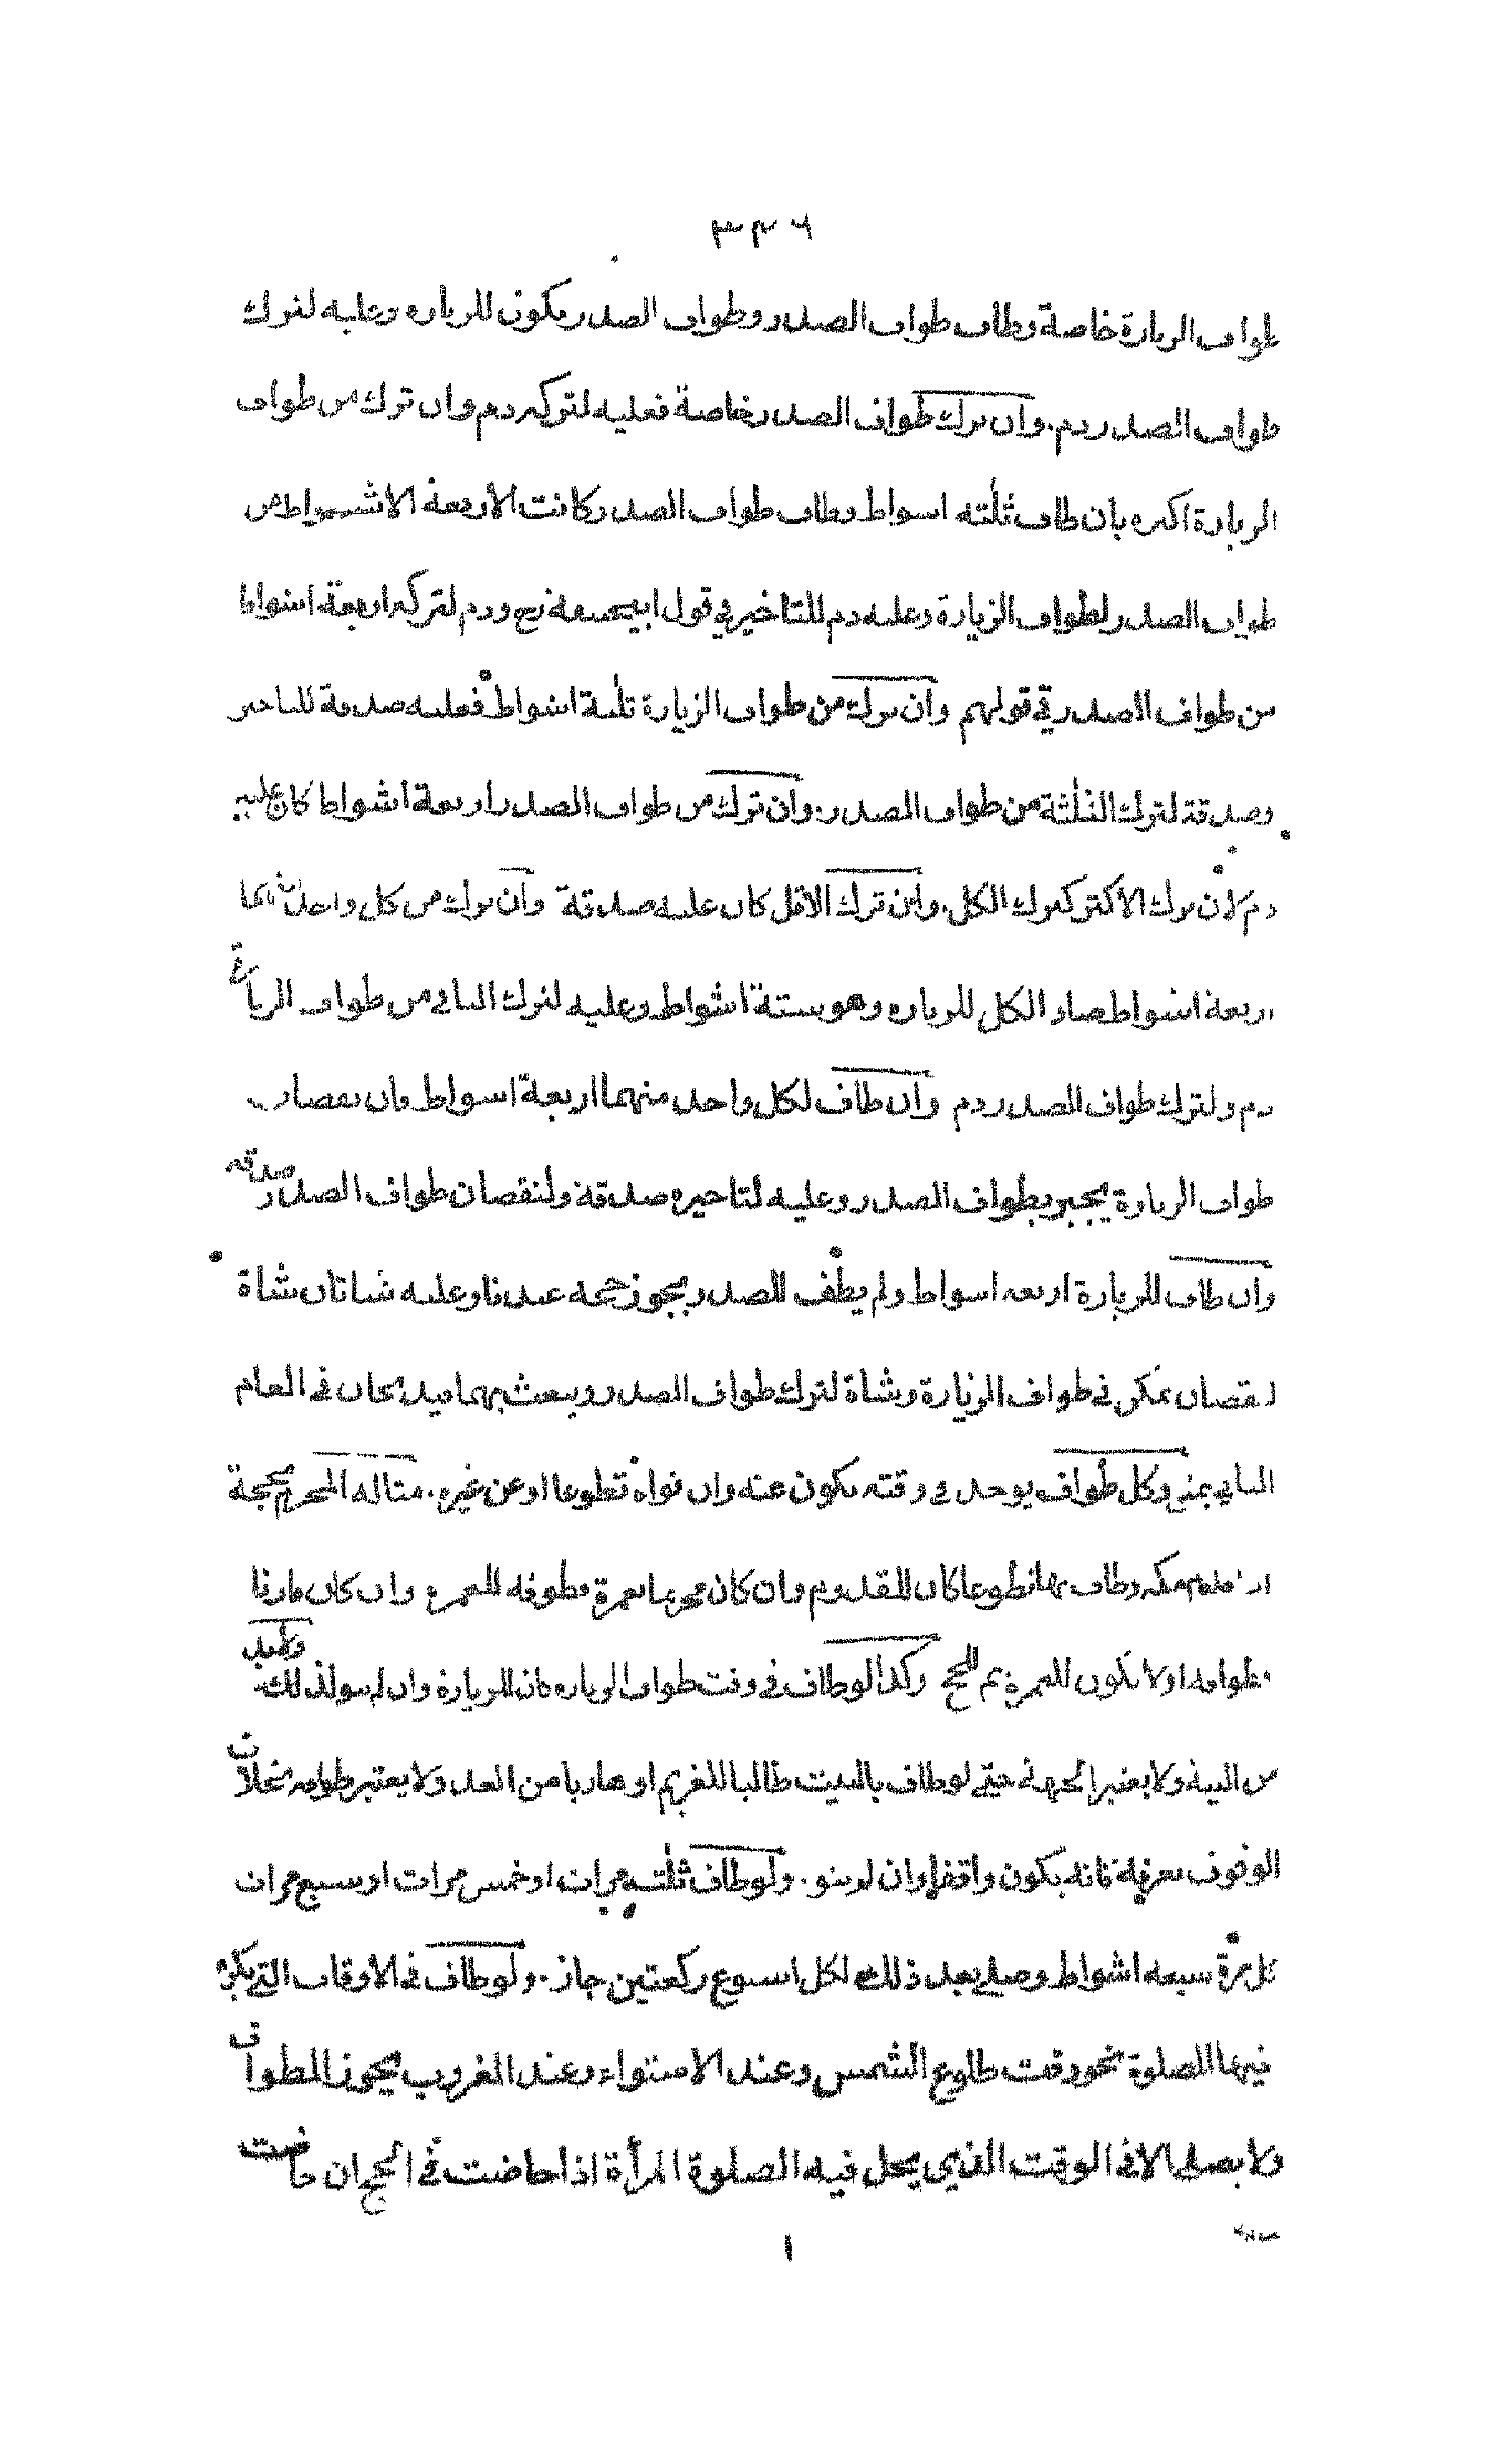 ٣٣٦
طواف الزيارة خاصة وطاف طواف الصدر وطواف الصدر يكون للزيارة وعليه لترك
طواف الصدر دم. وان ترك طواف الصدر خاصة فعليه لتركه دم وان ترك من طواف
الزيارة اكثره بان طاف ثلثة اشواط وطاف طواف الصدر كانت الاربعة الاشواط من
طواف الصدر لطواف الزيارة وعليه دم للتاخير في قول ابيحنيفة رح ودم لتركه اربعة اشواط
من طواف الصدر في قولهم وان ترك من طواف الزيارة ثلثة اشواط فعليه صدقة للتاخير
وصدقة لترك الثلثة من طواف الصدر. وان ترك من طواف الصدر اربعة اشواط كان عليه
دم لان ترك الاكثر كترك الكل. وان ترك الاقل كان عليه صدقة وان ترك من كل واحد منهما
اربعة اشواط صار الكل للزيارة وهو ستة اشواط وعليه لترك الباقي من طواف الزيارة
دم ولترك طواف الصدر دم وان طاف لكل واحد منهما اربعة اشواط فان نقصان
طواف الزيارة يجبر بطواف الصدر وعليه لتاخيره صدقة ولنقصان طواف الصدر صدقه
وان طاف للزيارة اربعه اشواط ولم يطف للصدر يجوز حجه عندنا وعليه شاتان شاة
لنقصان تمكن في طواف الزيارة وشاة لترك طواف الصدر ويبعث بهما فيذبحان في العام
الثاني بمنى وكل طواف يوجد في وقته يكون عنه وان نواه تطوعا او عن غيره. مثاله المحرم بحجة
اذا قدم مكه وطاف بها تطوعا كان للقدوم وان كان محرما بعمرة فطوفه للعمرة وان كان قارنا
فطوافه اولا يكون للعمرة ثم للحج وكذا لو طاف في وقت طواف الزياره كان للزيارة وان لم ينو لذلك ولابد
من النية ولا يعتبر الجهة حتى لو طاف بالبيت طالبا للغريم او هاربا من العدو لا يعتبر طوافه بخلاف
الوقوف بعرفة فانه يكون واقفا وان لم ينو. ولو طاف ثلثه مرات او خمس مرات او سبع مرات
كل مرة سبعه اشواط وصلى بعد ذلك لكل اسبوع ركعتين جاز. ولو طاف في الاوقات التي يكره
فيها الصلوة نحو وقت طلوع الشمس وعند الاستواء وعند الغروب يجوز الطواف
ولا يصلي الا في الوقت الذي يحل فيه الصلوة المرأة اذا حاضت في الحج ان حاضت
١